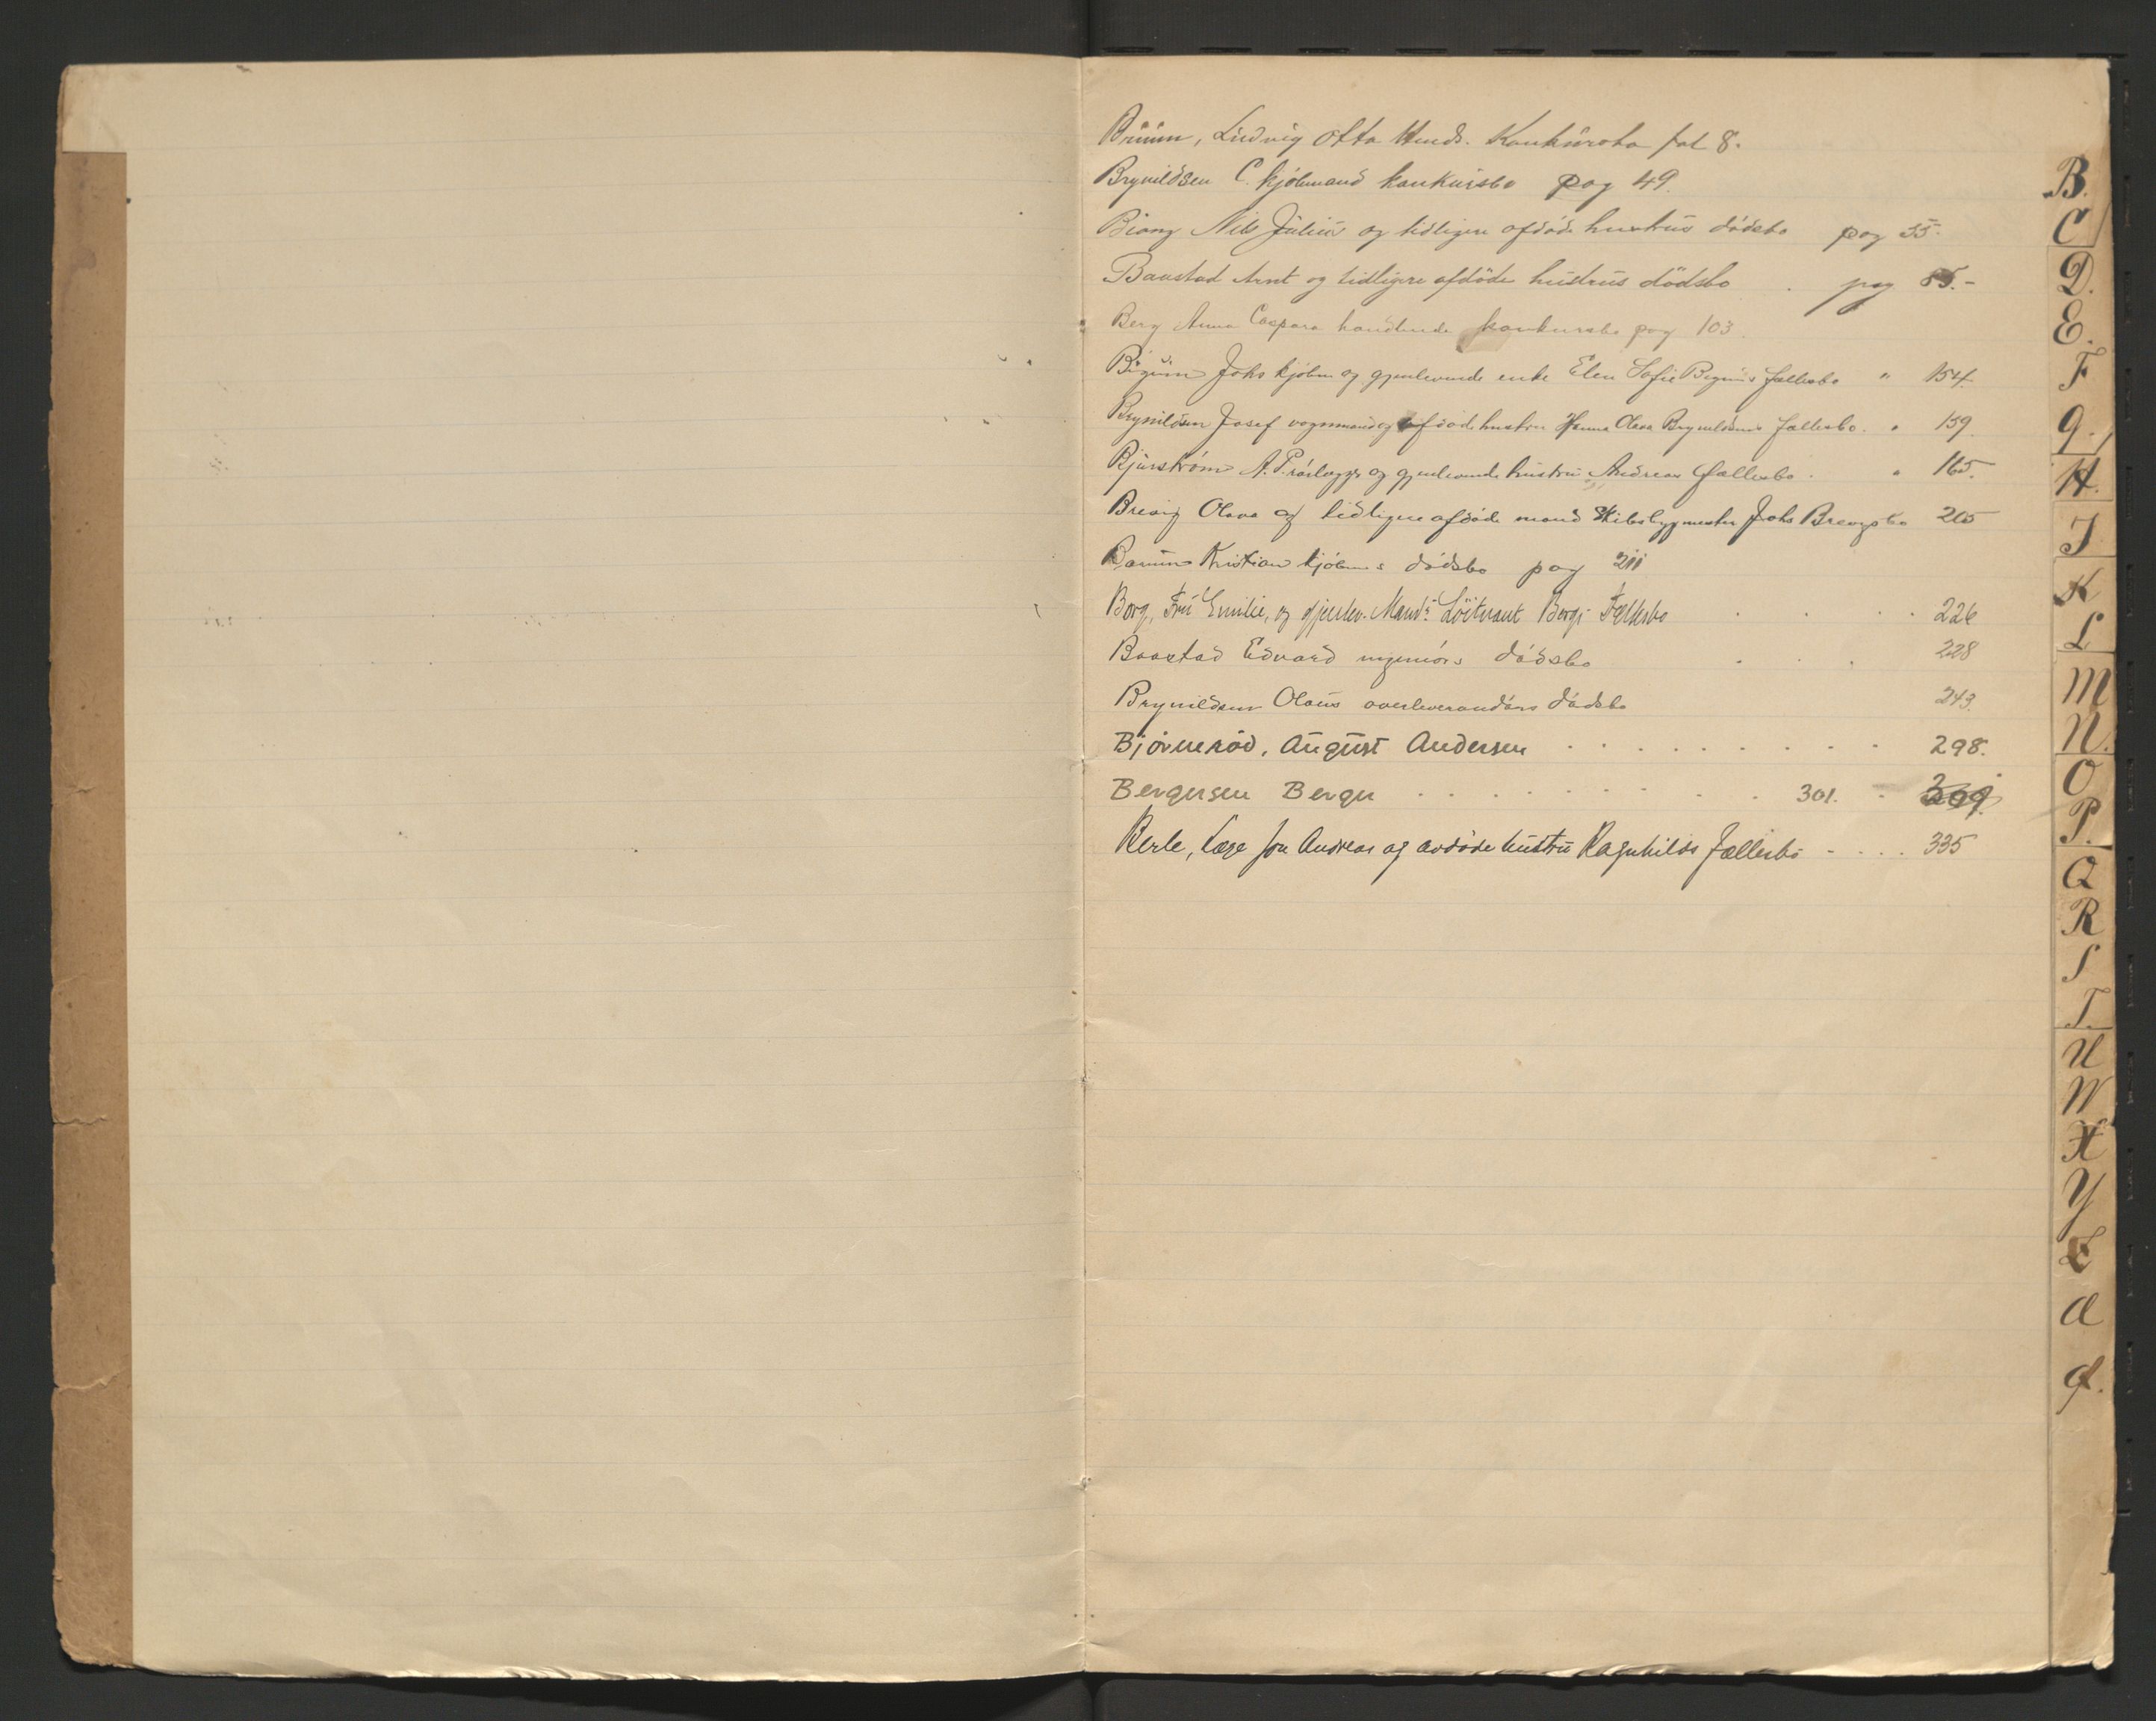 Bruun, Ludvig Otto Konkursbo fol 8.
Brynildsen C. kjöbmand konkursbo pag 49.
Biong Nils Julius og tidligere afdöde hustrus dödsbo pag 55.
Baustad Arnt og tidligere afdöde hustrus dödsbo . pag 85.-
Berg Anna Caspara handlende konkursbo pag 103.
Bigum Johs kjöbm og gjenlevende enke Elen Sofie Bigums fællesbo " 154.
Brynildsen Josef vognmand og afdöde hustru Hanna Olava Brynildsens fællesbo. " 159.
Bjurström A. P. rörlægger og gjenlevende hustru Andreas fællesbo. " 165.
Brevig Olava og tidligere afdöde mand Skibsbygmester Johs Brevigs bo 205
Kristian kjöbm s dödsbo pag 211
Borg, Fru Emilie, og gjenlev. Mands Löitnant Borgs Fællesbo . . . . 226
Baastad Edvard ingeniörs dödsbo . . . 228
Brynildsen Olaus overleverandörs dödsbo 243.
Björneröd, August Andersen . . . . . . . . . 298.
Bergersen Berger . . . . . . . . . 301. - 309.
Berle, Læge Jon Andreas og avdöde hustru Ragnhilds Fællesbo - . . . . 335
B.
C
D.
E.
F
G.
H.
J
K
L
M
N.
O
P.
Q
R
S
T.
U
W
X
Y
Z
Æ
Ø.